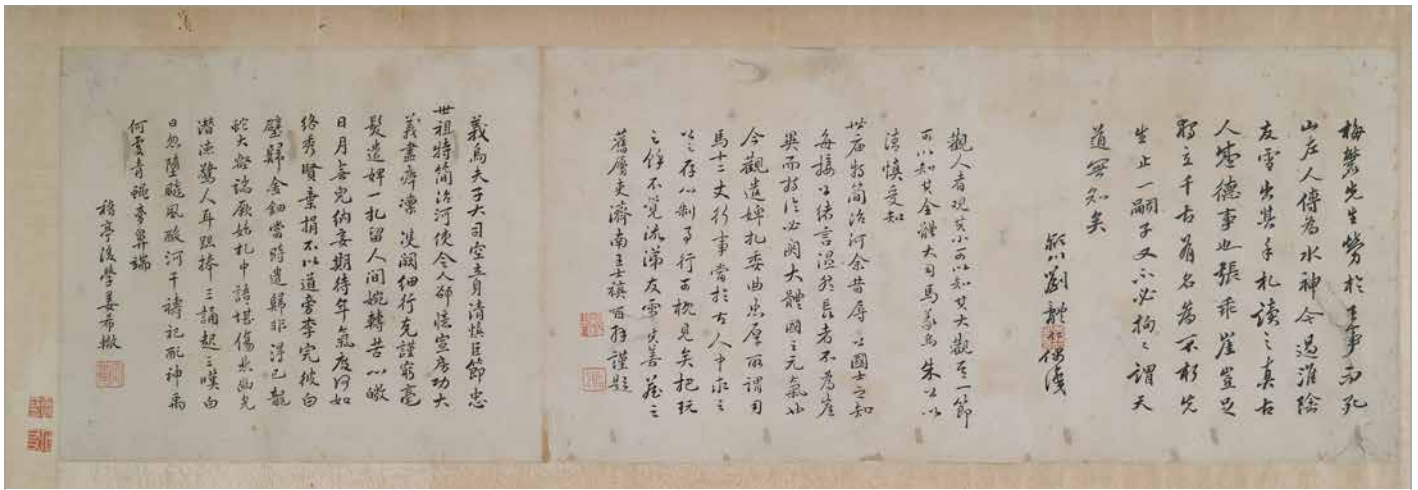 梅麓先生勞於王事而死
山左人傳為水神今過淮陰
友雪出其手札讀之真古
人盛德事也張乖崖豈足
獨立千古有名為不朽先
生止一嗣子又不必拘〻謂天
道無知矣
潁川劉體仁偶識
觀人者觀其小可以知其大觀其一節
可以知其全體大司馬義烏朱公以
清慎受知
世廟特簡治河余昔辱公國士之知
每接公緒言溫然長者不為崖
異而持論必關大體國之元氣也
今觀遣婢札委曲忠厚所謂司
馬十二丈行事當於古人中求之
以之存心制事行可概見矣把玩
之餘不覺流涕友雪其善藏之
舊屬吏濟南王士禛百拜謹題
義烏夫子大司空立身清慎臣節忠
世祖特簡治河使令人卻憶宣房功大
義盡瘁凜雙闕細行克謹窮毫
髮遣婢一札留人間婉轉苦心皦
日月喜完納妾期待年氣度何如
絡秀賢棄捐不以道旁李完彼白
璧歸金鈿當時遣歸非得已龍
蛇大谿端厥始札中語堪傷幽光
潛德驚人耳跽捧三誦起三嘆白
日忽墮颷風酸河干禱祀配神禹
何處青
穆亭後學姜希轍